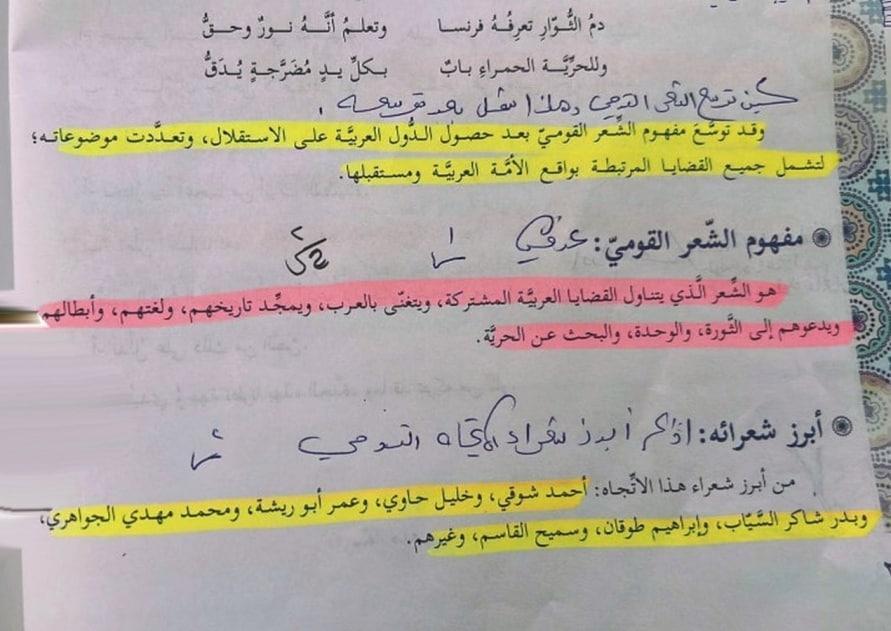 دمُ الثُّوّارِ تعرِفُهُ فرنسا وتعلمُ أنَّهُ نورٌ وحقُّ
وللحرِّيَّة الحمراءِ بابٌ بكلِّ يدٍ مُضَرَّجةٍ يُدَقُّ
وقد توسَّعَ مفهوم الشِّعر القوميّ بعد حصول الدُّول العربيَّة على الاستقلال، وتعدَّدت موضوعاته؛
لتشمل جميع القضايا المرتبطة بواقع الأمَّة العربيَّة ومستقبلها.
مفهوم الشّعر القوميّ: عرفي
هو الشِّعر الَّذي يتناول القضايا العربيَّة المشتركة، ويتغنّى بالعرب، ويمجِّد تاريخهم، ولغتهم، وأبطالهم
ويدعوهم إلى الثَّورة، والوحدة، والبحث عن الحريَّة.
أبرز شعرائه: اذكر أبرز شعراء الاتجاه القومي
من أبرز شعراء هذا الاتِّجاه: أحمد شوقي، وخليل حاوي، وعمر أبو ريشة، ومحمد مهدي الجواهري،
وبدر شاكر السَّيّاب، وإبراهيم طوقان، وسميح القاسم، وغيرهم.